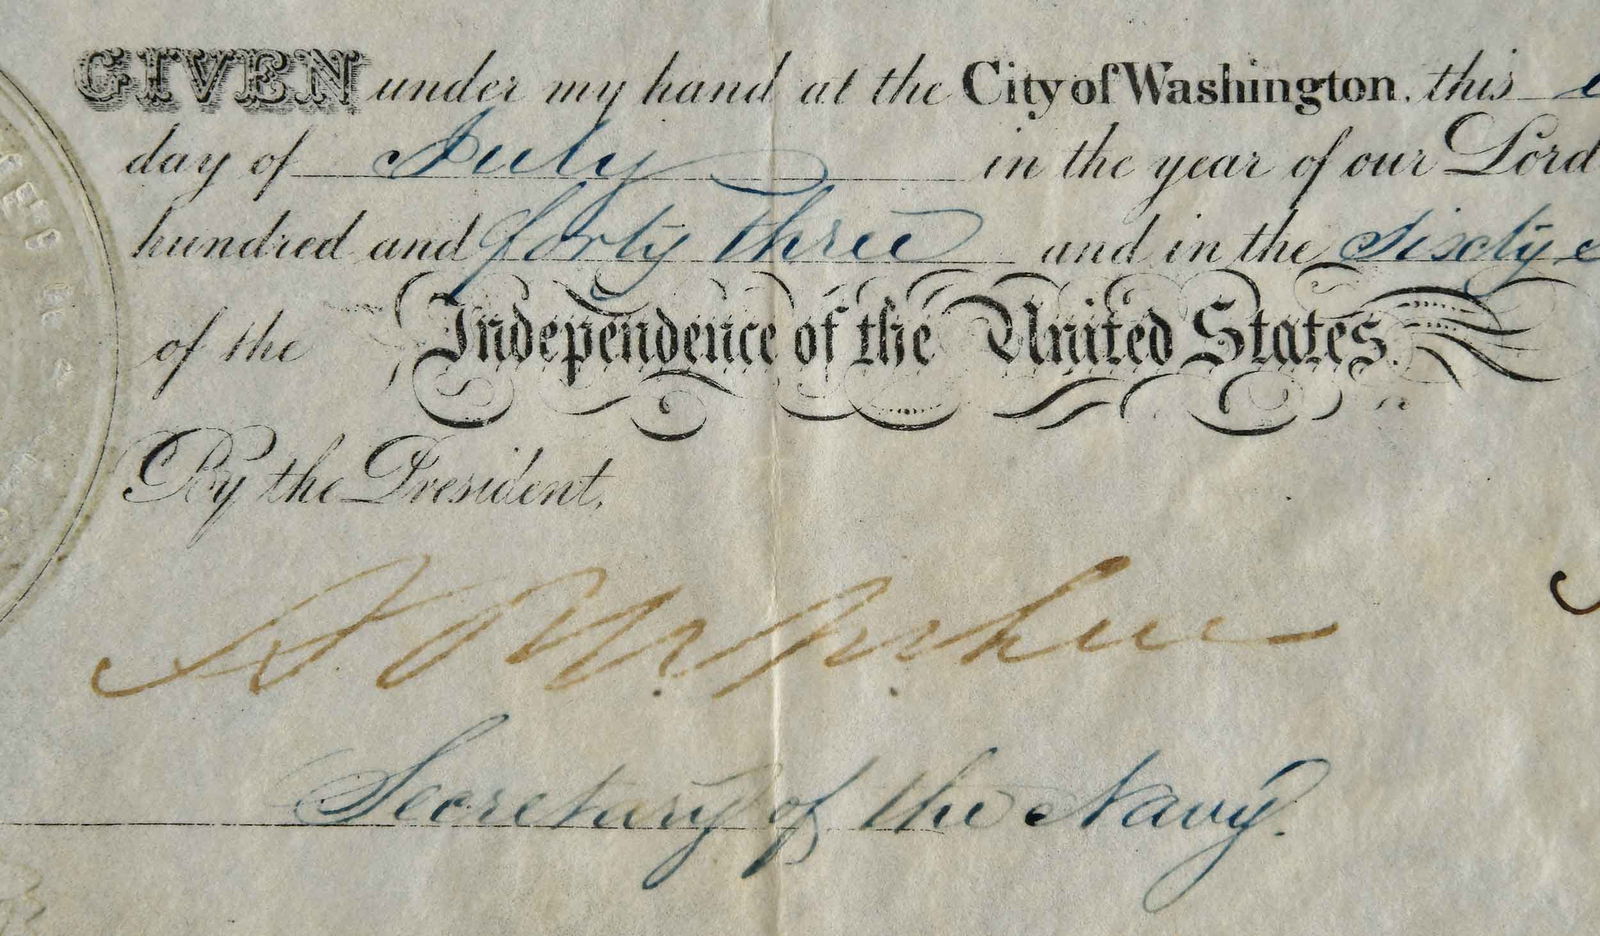 GIVEN under my hand at the City of Washington, this
day of July in the year of our Lord
hundred and forty three and in the Sixty
of the Independence of the United States.
By the President,
Secretary of the Navy.